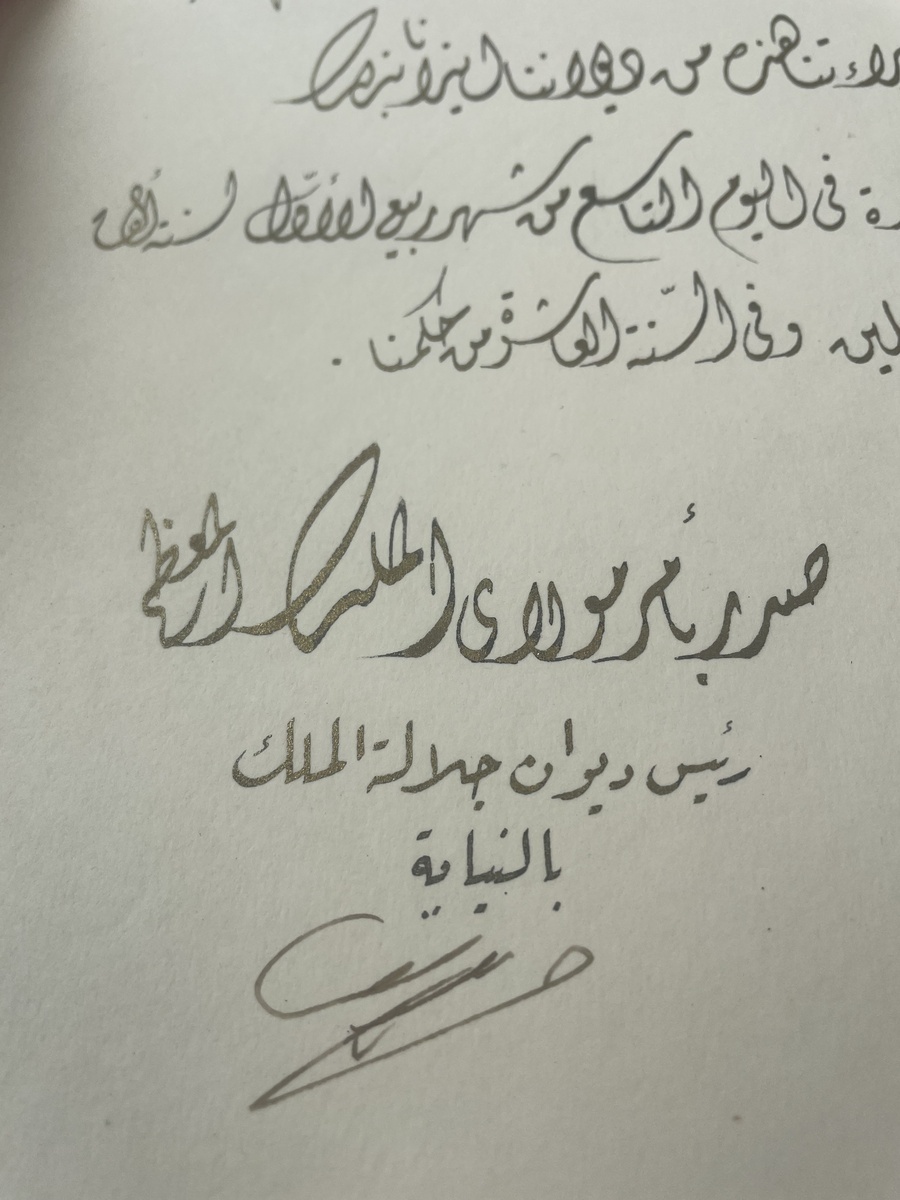 هذه من ديواننا ايذانا بذلك
فى اليوم التاسع من شهر ربيع الأوّل لسنة
وفى السّنة العاشرة من حكمنا .
صدر بأمر مولاى الملك المعظم
رئيس ديوان جلالة الملك
بالنيابة